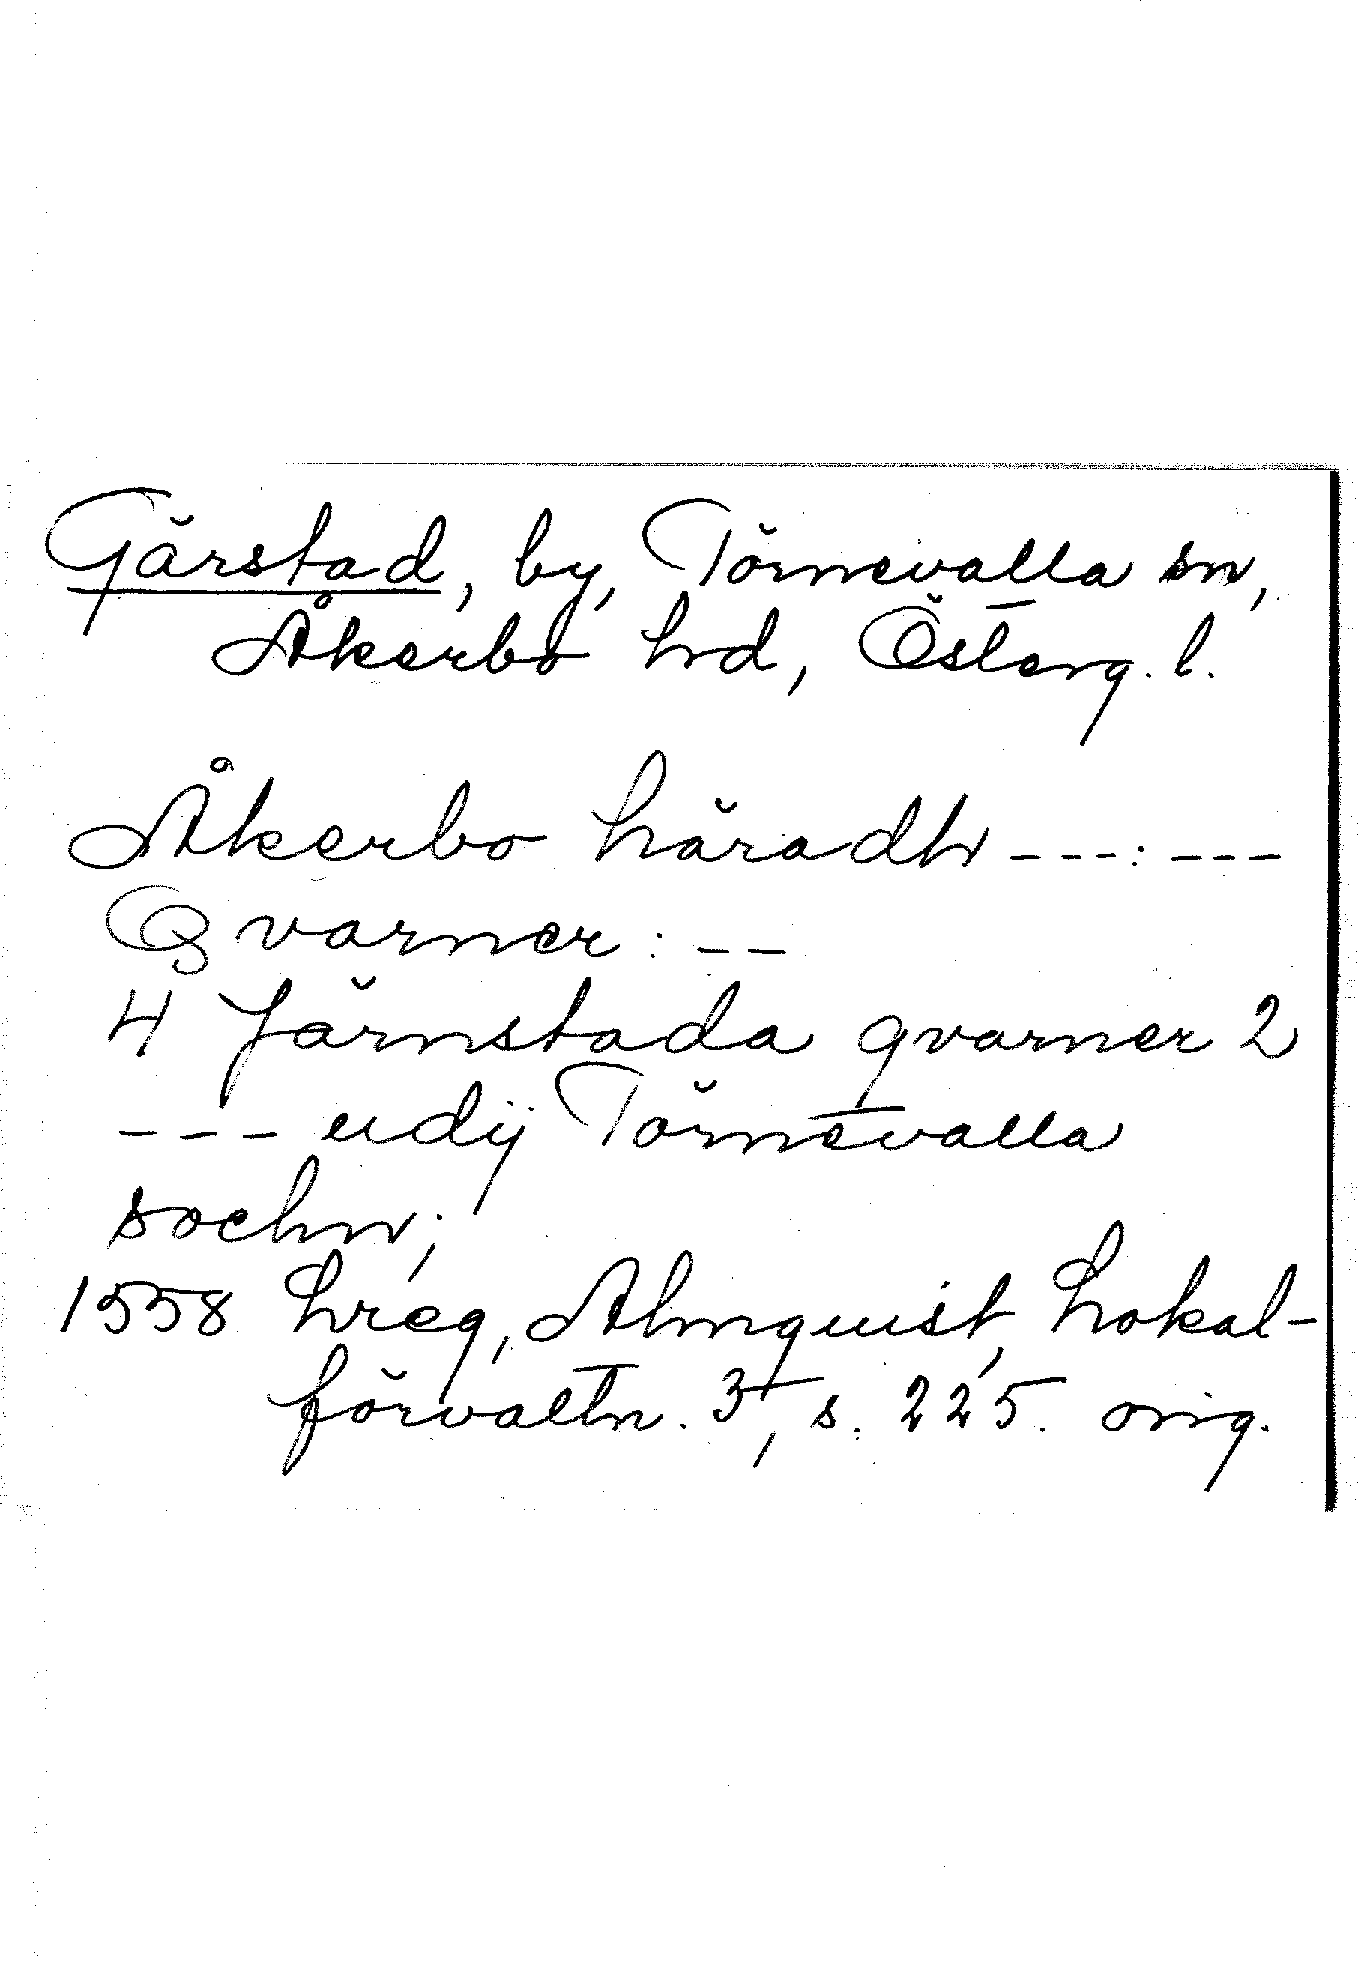 Gärstad, by, Törnevalla sn,
Åkerbo hrd, Österg. l.
Åkerbo häradh ---:---
Qvarner: --
4 Järnstada qvarner 2
--- udij Törnevalla
sochn;
1558 hreg, Almquist, Lokal-
förvaltn. 3, s. 225. orig.